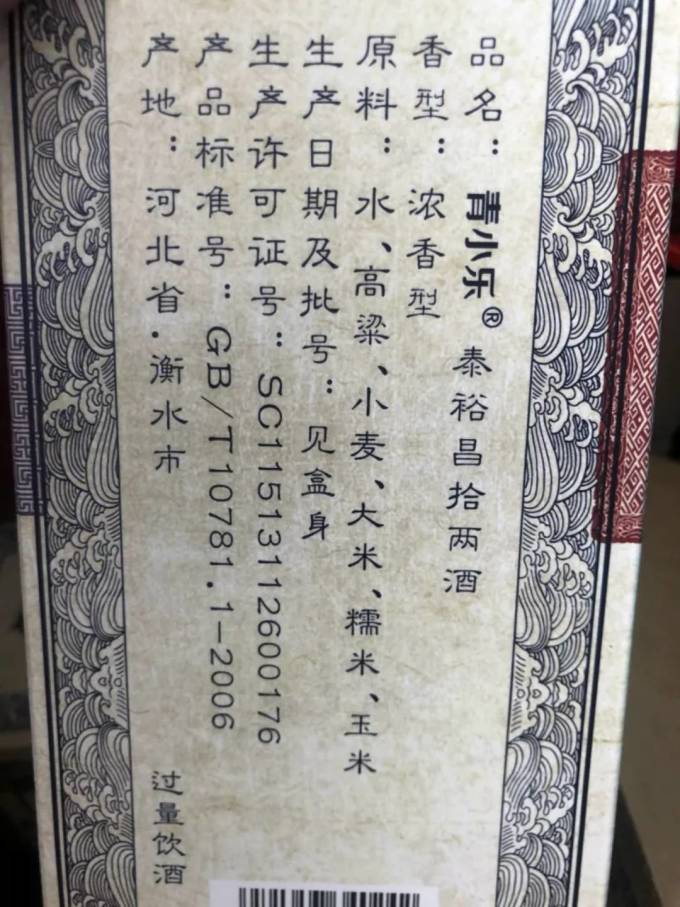 品名：青小乐® 泰裕昌拾两酒
香型：浓香型
原料：水、高粱、小麦、大米、糯米、玉米
生产日期及批号：见盒身
生产许可证号：SC11513112600176
产品标准号：GB/T10781.1-2006
产地：河北省·衡水市
过量饮酒